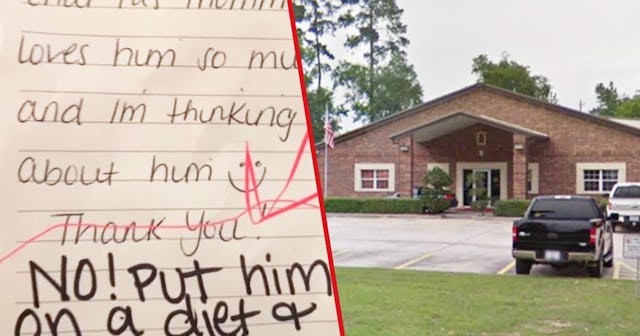 child momm
loves him so mu
and im thinking
about him
Thank You!
NO! Put him
on a diet &